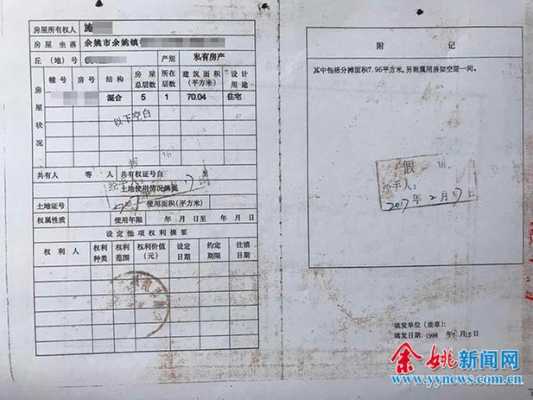 房屋所有权人 施
房屋坐落 余姚市余姚镇
丘（地）号 产别 私有房产
幢号 房号 结构 房屋总层数 所在层数 建筑面积（平方米） 设计用途
房屋状况
混合 5 1 70.04 住宅
以下空白
共有人 等 人 共有权证号自 至
土地使用情况摘要
土地证号 使用面积（平方米）
权属性质 使用年限 年 月 日至 年 月 日
设定他项权利摘要
权利人 权利种类 权利范围 权利价值（元） 设定日期 约定期限 注销日期
附 记
其中包括分摊面积7.96平方米,另附属用房架空层一间。
假
经手人：
2017年2月17日
填发单位（盖章）：
填发日期：1998年 月15日
余姚新闻网
www.yynews.com.cn